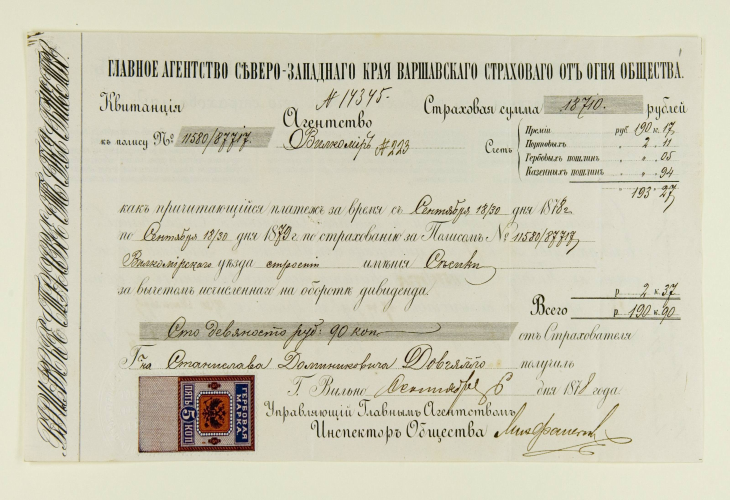 ГЛАВНОЕ АГЕНТСТВО СѢВЕРО-ЗАПАДНАГО КРАЯ ВАРШАВСКАГО СТРАХОВАГО ОТЪ ОГНЯ ОБЩЕСТВА.
№ 14345.
Квитанція Страховая сумма 18710. рублей
Агентство
къ полису № 11580/87717. Вилкоміръ №223
Счетъ
Преміи руб. 190 к. 17
Портовыхъ " 2 " 11
Гербовыхъ пошлинъ " " 05
Казенныхъ пошлинъ " " 94
" 193 " 27
какъ причитающійся платежъ за время съ Сентября 18/30 дня 1878 г.
по Сентября 18/30 дня 1879 г. по страхованію за Полисомъ № 11580/87717
Вилкомірскаго уѣзда имѣнія
за вычетомъ исчисленнаго на оборотѣ дивиденда. р. 2 к. 37
Всего р. 190 к. 90
Сто девяносто руб: 90 коп. отъ Страхователя
Г-на Станислава Доминиковича Довгялло получилъ
Г. Вильно 6 дня 1878 года.
Управляющій Главнымъ Агентствомъ
Инспекторъ Общества
ГЕРБОВАЯ МАРКА
ПЯТЬ 5 КОП